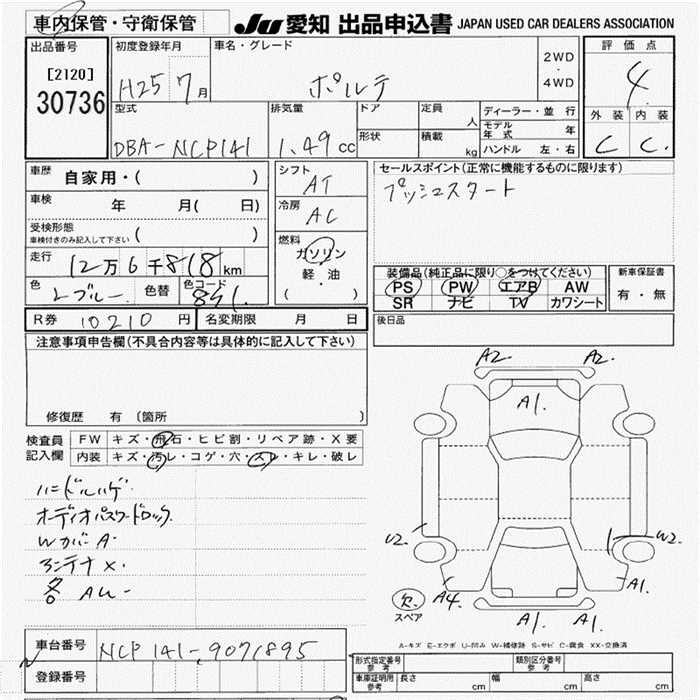 車内保管・守衛保管
JU 愛知 出品申込書 JAPAN USED CAR DEALERS ASSOCIATION
出品番号
[2120]
30736
初度登録年月
H25 7月
車名・グレード
ポルテ
2WD
・
4WD
評価点
4
外装 内装
C C
型式
DBA-NCP141
排気量
1.49cc
ドア
形状
定員
人
積載
kg
ディーラー・並行
モデル年式 年
ハンドル 左・右
車歴 自家用・( )
車検 年 月( 日)
受検形態
車検付きのみ記入して下さい ( )
走行 12万6千818km
色 Lブルー 色替 色コード 8S1
シフト
AT
冷房
AC
燃料
ガソリン
軽・油
( )
セールスポイント(正常に機能するものに限ります)
プッシュスタート
装備品(純正品に限り○をつけてください)
PS PW エアB AW
SR ナビ TV カワシート
新車保証書
有・無
R券 10210円 名変期限 月 日
後日品
注意事項申告欄(不具合内容等は具体的に記入して下さい)
修復歴 有 〔箇所 〕
検査員記入欄
FW キズ・飛石・ヒビ割・リペア跡・X要
内装 キズ・汚レ・コゲ・穴・スレ・キレ・破レ
ハンドルハゲ
オーディオパスワードロック
WカバーA
アンテナ×
各 AU-
A2 A2
A1
U2 W2
A4 A1
A1 A1
欠
スペア
A-キズ E-エクボ U-凹み W-補修跡 S-サビ C-腐食 XX-交換済
車台番号 NCP141-9071895
登録番号
形式指定番号
参考
類別区分番号
参考
車庫証明用
参考
長さ cm 幅 cm 高さ cm